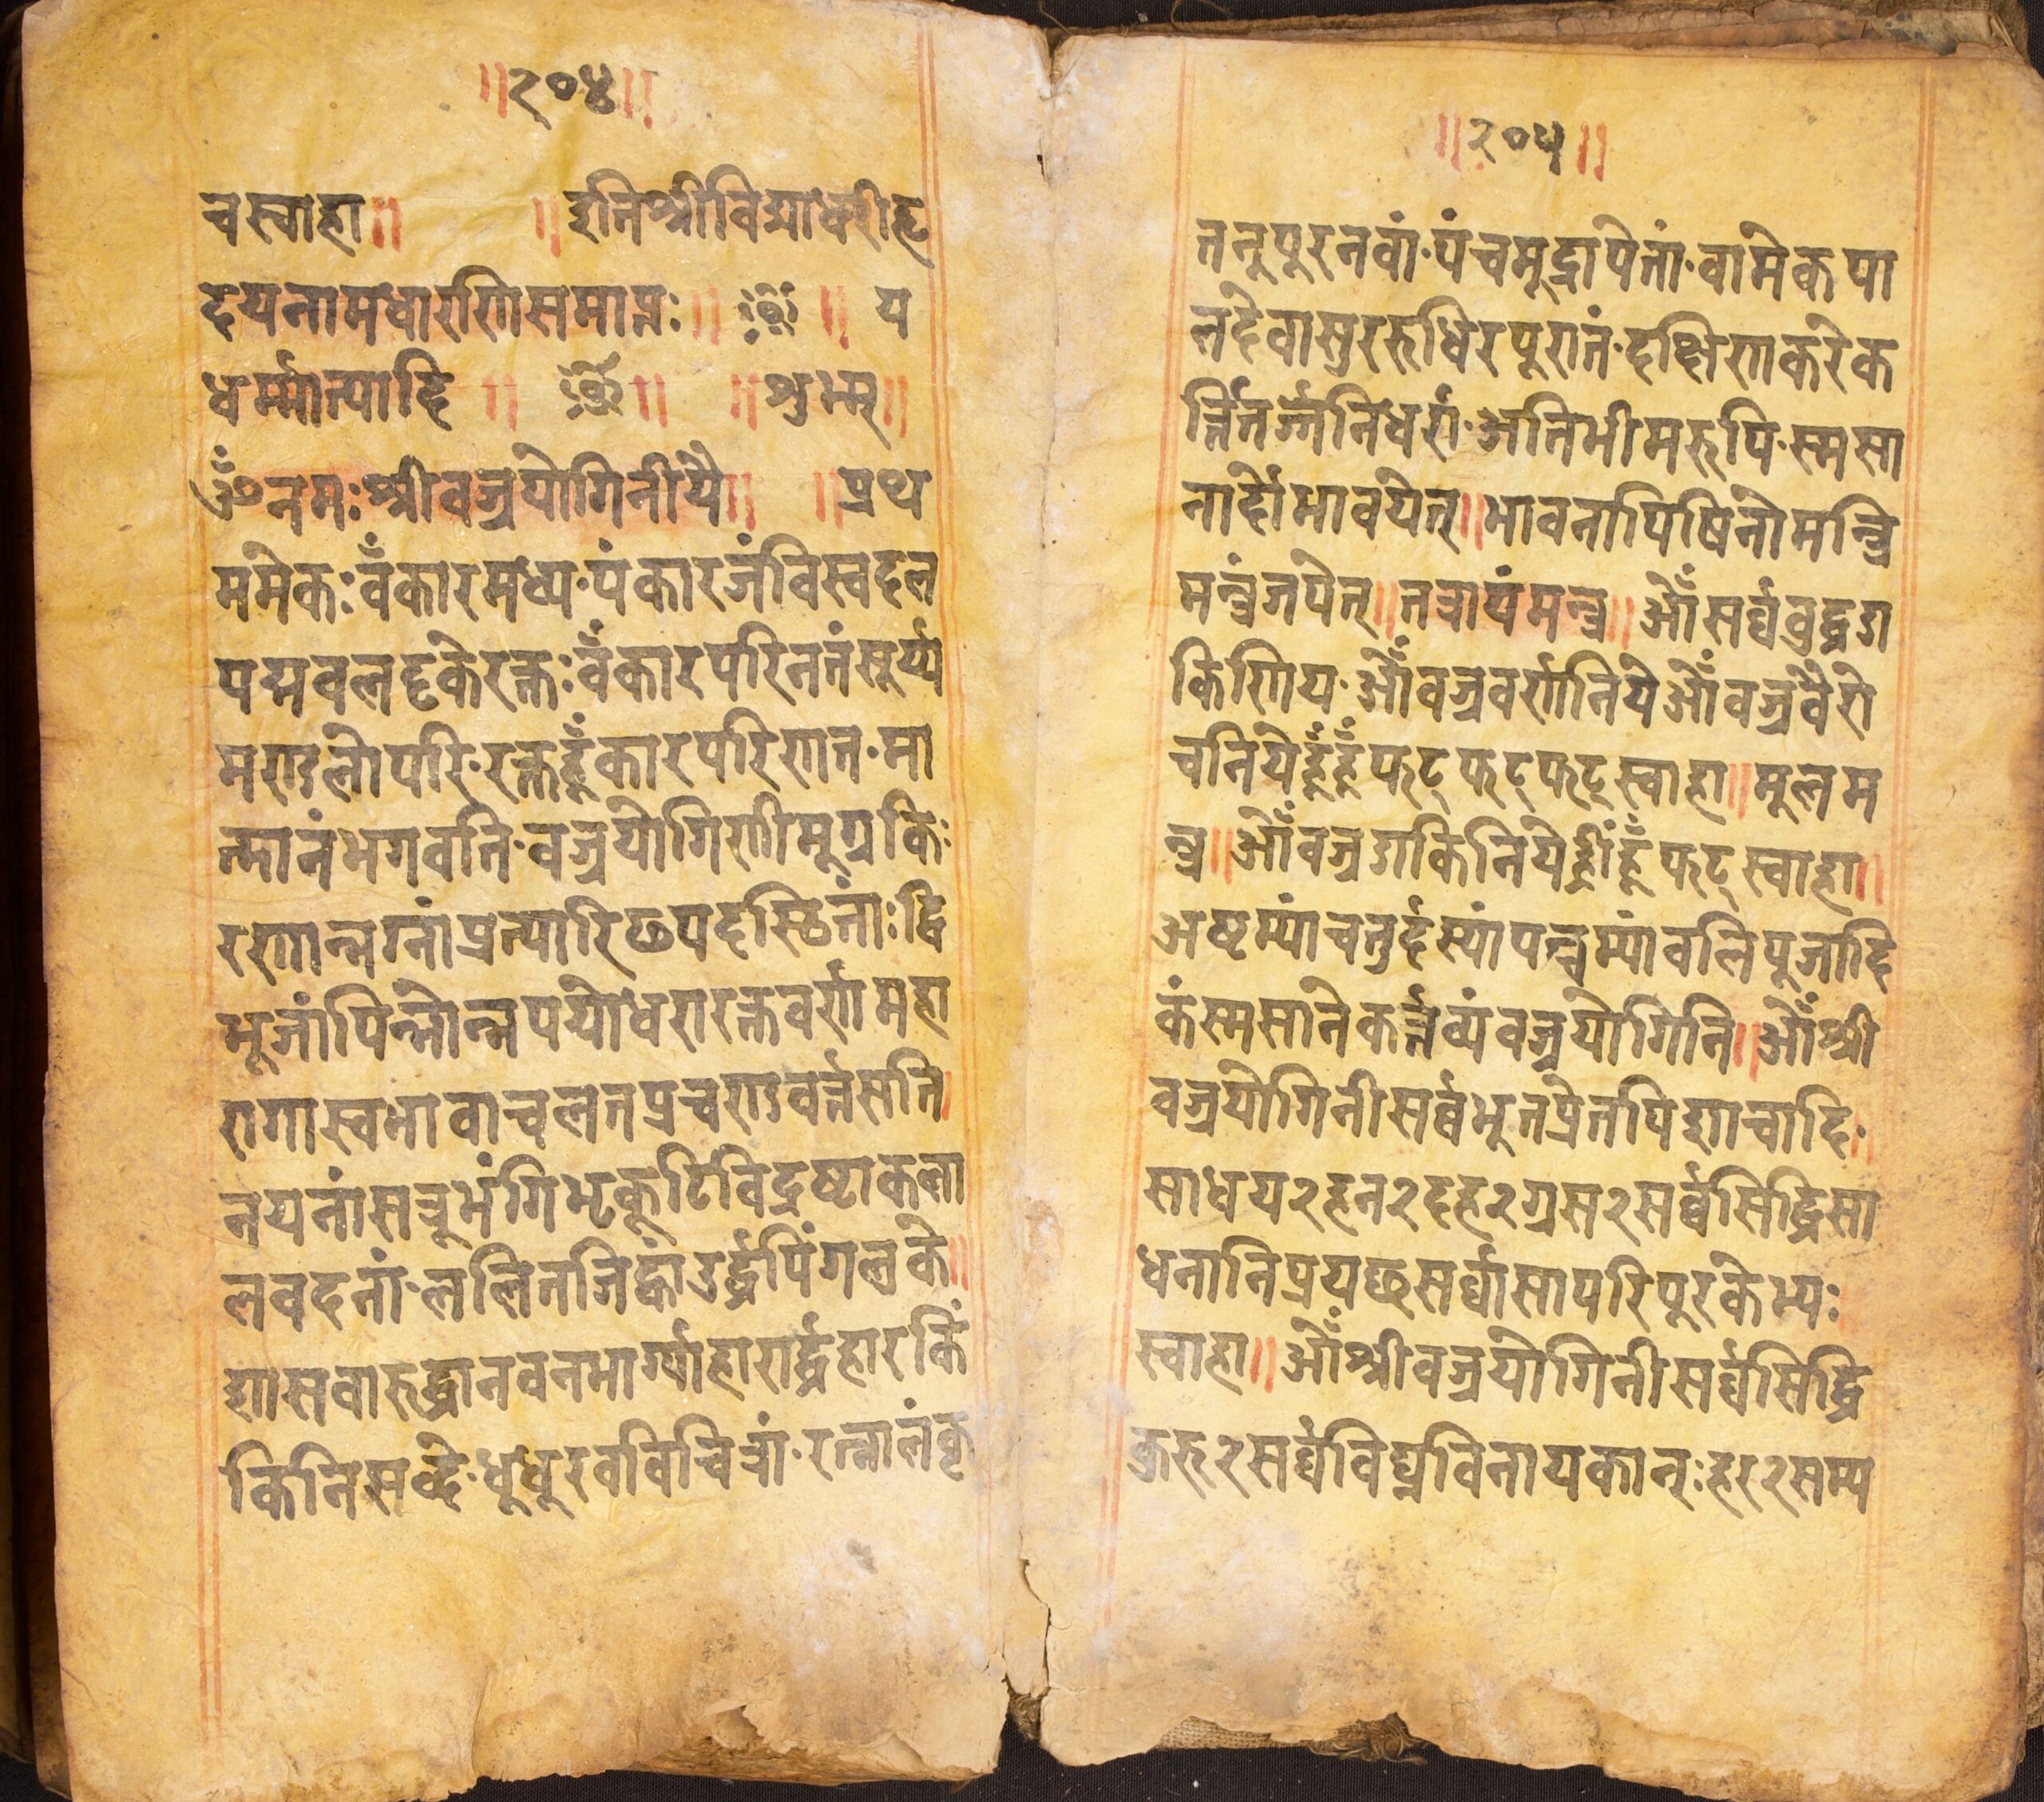 ॥२०४॥
चस्वाहा॥ ॥इतिश्रीविद्याधरीहृ
दयनामधारणिसमाप्तः॥ ॥ य
धर्म्मात्यादि ॥ ॥ ॥शुभम्॥
ॐनमःश्रीवज्रयोगिनीयै॥ ॥प्रथ
ममेकःवँकारमध्य·पंकारजंविस्वदल
पद्मवलदृकेरक्तःवँकारपरिनतंसूर्य्य
मण्डलोपरि·रक्तहूँकारपरिणत·मा
त्मानंभगवति·वज्रयोगिणीमूग्रकि·
रणान्नग्नांप्रत्यारिछपदस्ठितांःद्वि
भूजांपिन्नोन्नपयोधरारक्तवर्णामहा
रागास्वभावाच्चलतप्रचण्डवर्त्तसति
नयनांसत्रूभंगिभृकूटिविद्रष्टाकला
लवदनां·ललितजिह्वांउर्द्धपिंगलके॥
शासवारुद्धानवनमार्ग्याहारार्द्धहारकिं
किनिसव्दे·धूधूरवविचित्रां·रत्नालंकृ
॥२०५॥
तनूपूरनवां·पंचमूद्रापेतां·वामेकपा
लदेवासुररुधिरपूरातं·दक्षिणकरेक
र्त्तितर्ज्जनिधरां·अतिभीमरूपि·स्मसा
नार्दाभावयेत्॥भावनापिषितोमन्त्रि
मन्त्रंजपेत्॥तत्रायंमन्त्र॥ओँसर्व्वबुद्धडा
किणिय·ओँवज्रवर्णानियेओँवज्रवैरो
चनियेहूँहूँफट्फट्फट्स्वाहा॥मूलम
न्त्र॥ओँवज्रडाकिनियेह्रीँहूँफट्स्वाहा॥
अष्टम्यांचतुर्दस्यांपन्चम्यांवलिपूजादि
कंस्मसानेकर्त्तव्यंवज्रयोगिनि॥ओँश्री
वज्रयोगिनीसर्व्वभूतप्रेतपिशाचादि·
साधय२हन२दह२ग्रस२सर्व्वसिद्धिसा
धनानिप्रयछसर्व्वासापरिपूरकेभ्यः
स्वाहा॥ओँश्रीवज्रयोगिनीसर्व्वसिद्धि
कुरु२सर्व्वविघ्नविनायकान्ःहर२सम्य